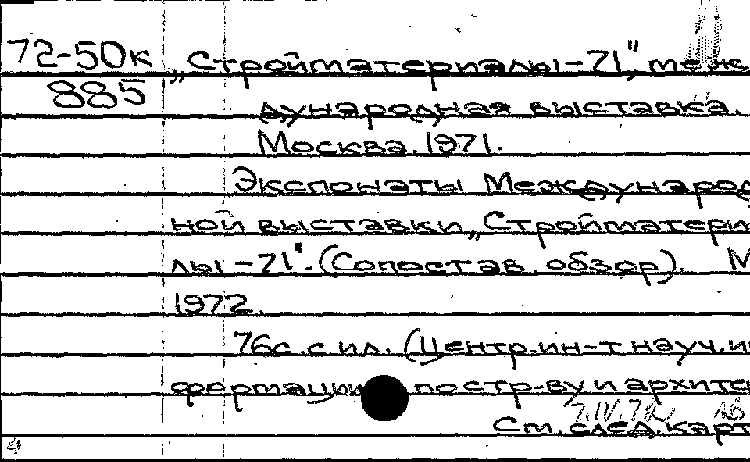 72-50к „Стройматериалы-71", меж
885 дународная выставка.
Москва. 1971.
Экспонаты Международ
ной выставки „Стройматериа
лы-71". (Сопостав. обзор). М
1972.
76с. с ил. (Центр. ин-т науч. ин
формации по стр-ву и архите
7.IV.72
Ст. след. карт